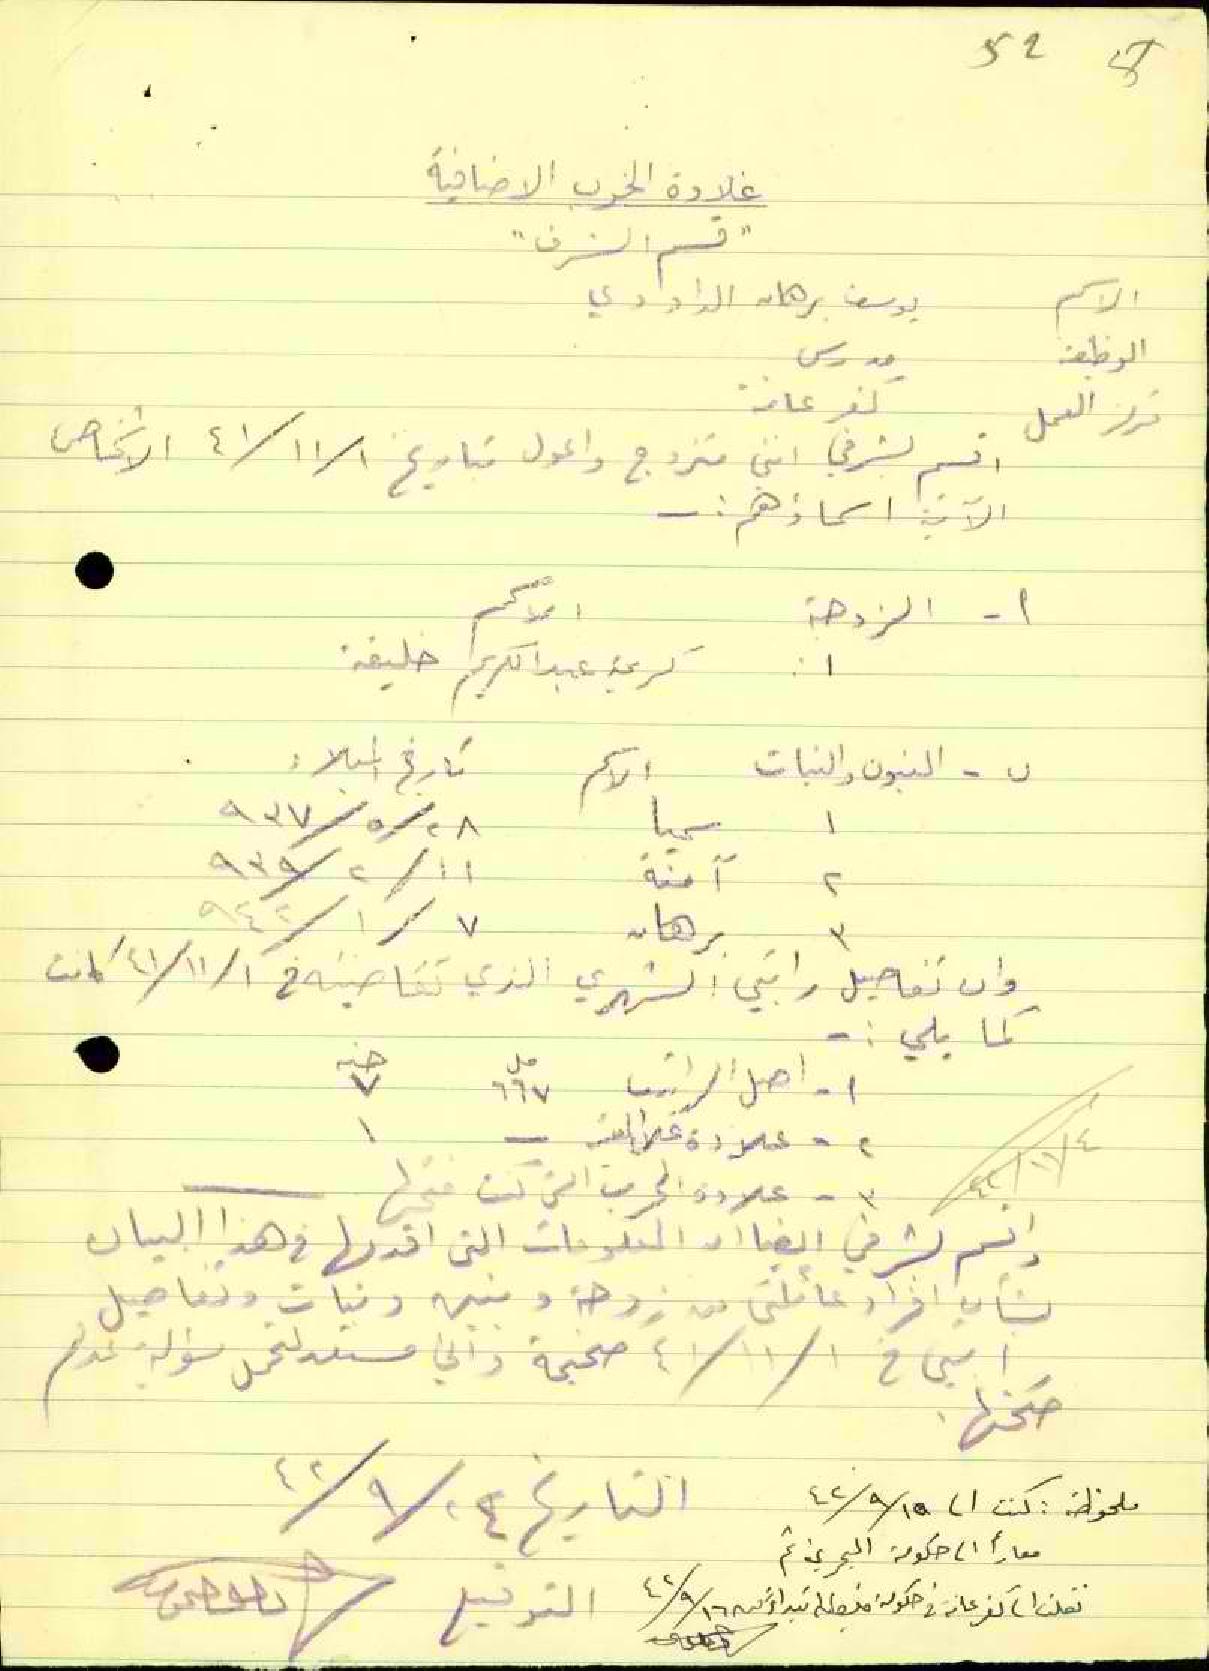 52
علاوة الحرب الاضافية
"قسم الشرف"
الاسم يوسف برهان الداودي
الوظيفة مدرس
مركز العمل كفر عانة
اقسم بشرفي انني متزوج واعول بتاريخ ٤١/١١/١ الاشخاص
الآتية اسماؤهم :-
١ - الزوجة الاسم
١: كريمة عبد الكريم خليفة
ب - البنون والبنات الاسم تاريخ الميلاد
١ سميا ٩٣٧/٥/٢٨
٢ آمنة ٩٣٩/٢/١١
٣ برهان ٩٤٢/١/٧
وان تفاصيل راتبي الشهري الذي تقاضيته في ٤١/١١/١ كانت
كما يلي :-
مل جنيه
١ - اصل الراتب ٦٦٧ ٧
٢ - علاوة غلاء المعيشة — ١
٣ - علاوة الحرب التي كنت منحتها —
٤٢/١١/٤
واقسم بشرفي ايضا ان المعلومات التي اقدمها في هذا البيان
بشأن افراد عائلتي من زوجة وبنين وبنات وتفاصيل
راتبي في ٤١/١١/١ صحيحة وانني مستعد لتحمل مسؤولية عدم
صحتها.
التاريخ ٤٢/٩/٢٤
التوقيع
ملحوظة : كنت الى ٤٢/٩/١٥
معارا الى حكومة البحرين ثم
نقلت الى كفر عانة في حكومة فلسطين ابتداء من ٤٢/٩/١٦